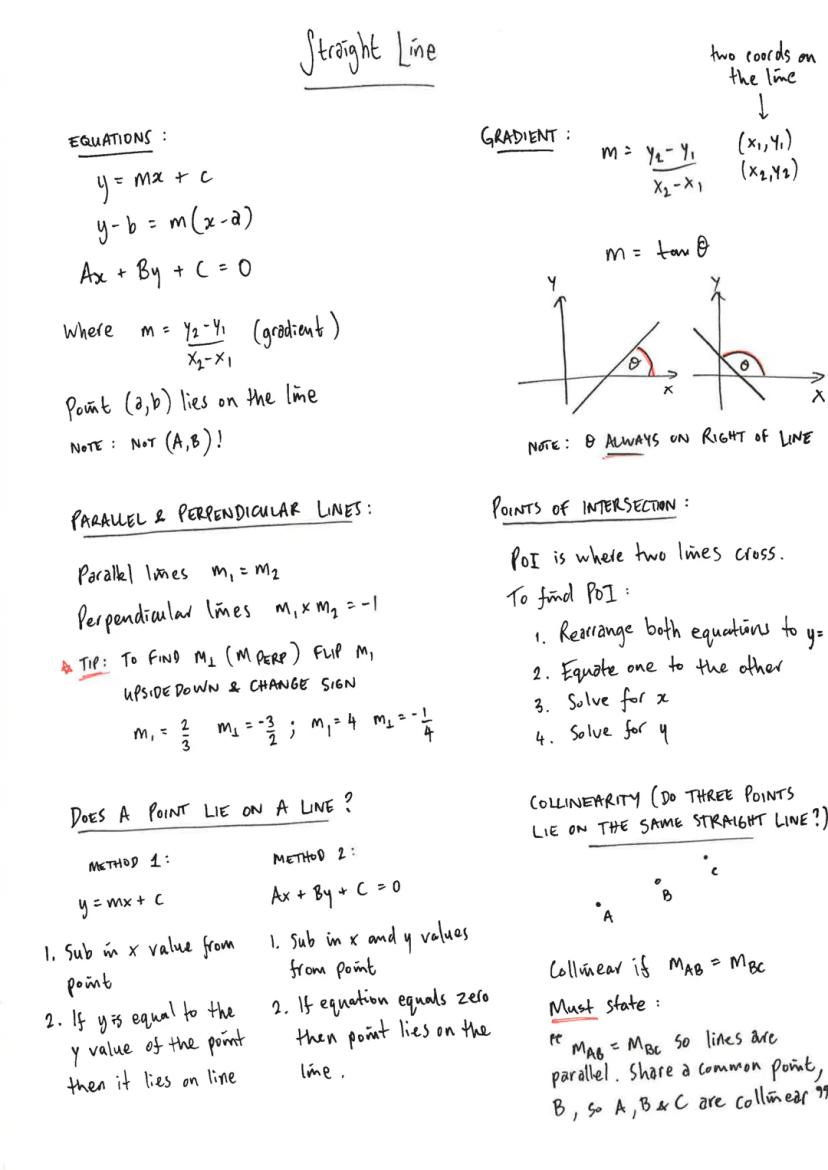 Straight Line
two coords on
the line
EQUATIONS :
y = mx + c
y-b = m(x-a)
Ax + By + C = 0
Where m = y₂-y₁ / x₂-x₁ (gradient)
Point (a,b) lies on the line
NOTE : NOT (A,B)!
GRADIENT :
m = y₂-y₁ / x₂-x₁
(x₁,y₁)
(x₂,y₂)
m = tan θ
y
θ
x
y
θ
x
NOTE: θ ALWAYS ON RIGHT OF LINE
PARALLEL & PERPENDICULAR LINES :
Parallel lines m₁ = m₂
Perpendicular lines m₁ × m₂ = -1
TIP: TO FIND m⊥ (m PERP) FLIP m₁
UPSIDE DOWN & CHANGE SIGN
m₁ = 2/3 m⊥ = -3/2 ; m₁ = 4 m⊥ = -1/4
POINTS OF INTERSECTION :
PoI is where two lines cross.
To find PoI :
1. Rearrange both equations to y=
2. Equate one to the other
3. Solve for x
4. Solve for y
DOES A POINT LIE ON A LINE ?
METHOD 1 :
y = mx + c
1. Sub in x value from
point
2. If y is equal to the
y value of the point
then it lies on line
METHOD 2 :
Ax + By + C = 0
1. Sub in x and y values
from point
2. If equation equals zero
then point lies on the
line .
COLLINEARITY (DO THREE POINTS
LIE ON THE SAME STRAIGHT LINE?)
C
B
A
Collinear if mAB = mBC
Must state :
" mAB = mBC so lines are
parallel. Share a common point,
B, so A, B & C are collinear "